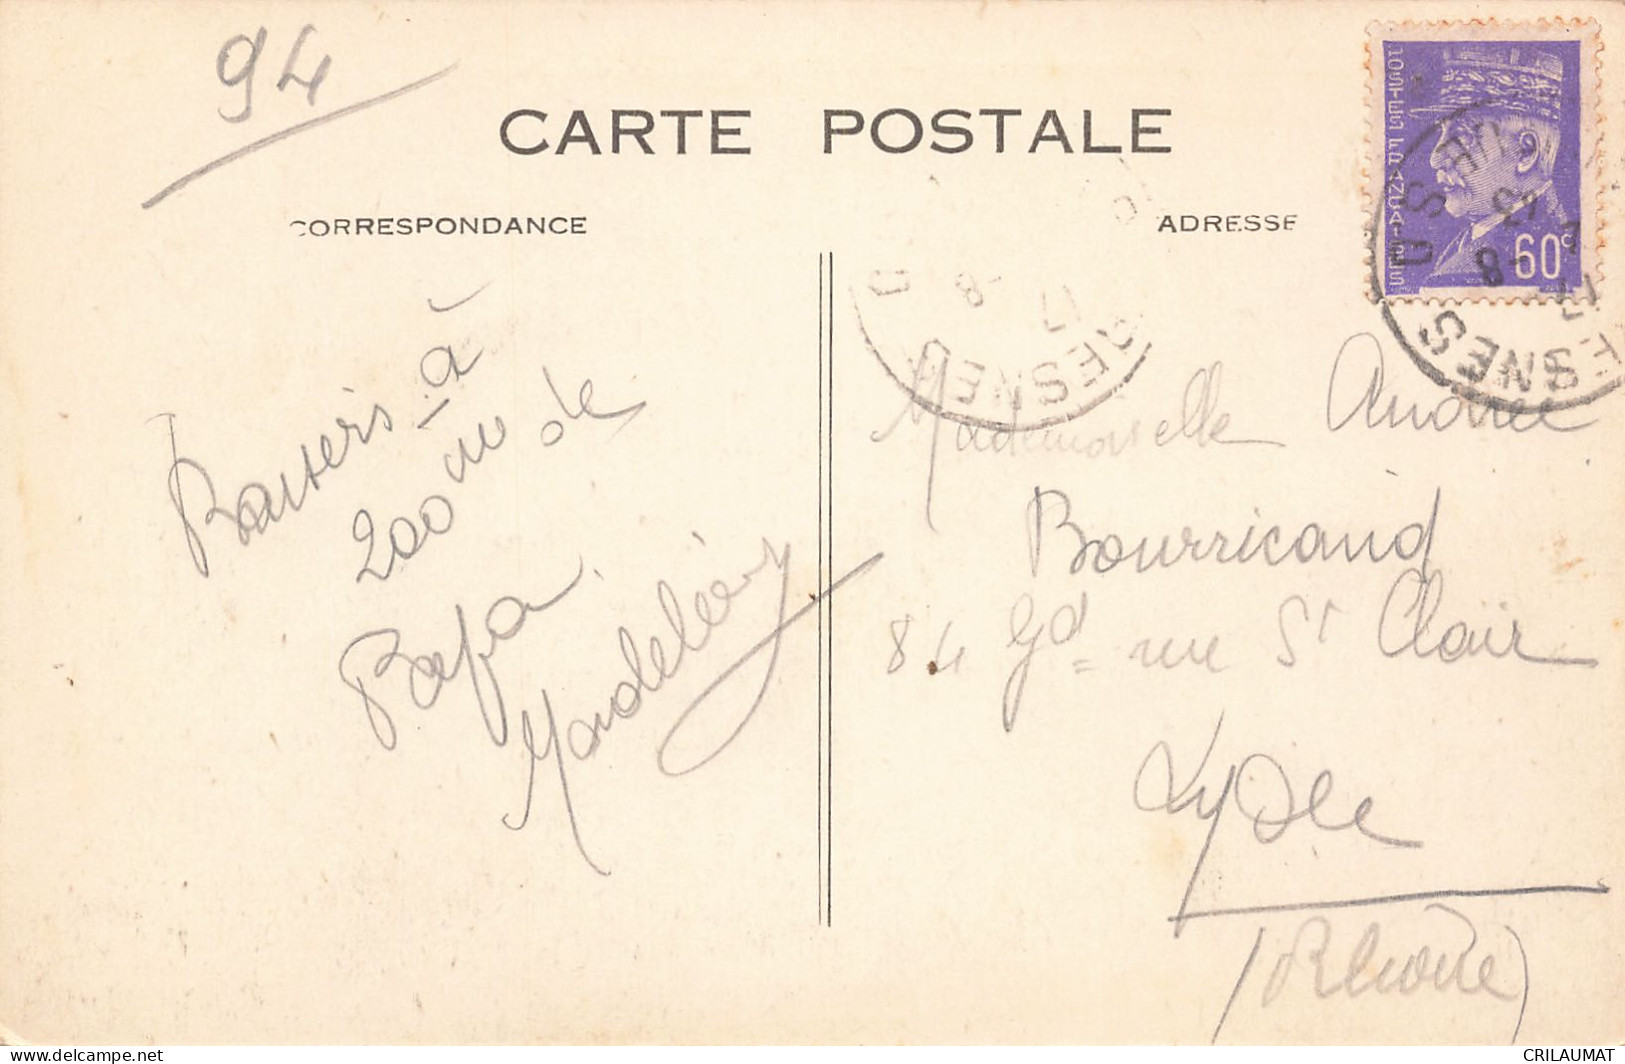 94
CARTE POSTALE
CORRESPONDANCE
ADRESSE
POSTES FRANÇAISES
60c
Baisers à
200 m de
Papa.
Mademoiselle Andrée
Bourricand
84 Gd rue St Clair
Lyon
(Rhône)
delcampe.net
CRILAUMAT